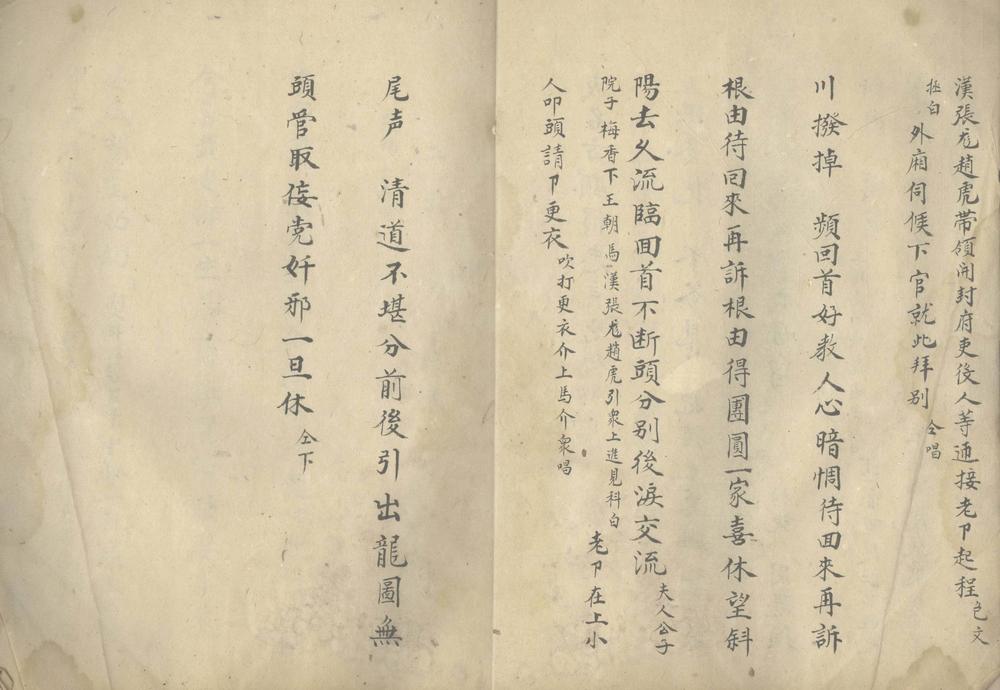 漢張龙趙虎帶領開封府吏役人等迎接老卩起程色文
拯白　外廂伺候下官就此拜别　仝唱
川撥掉　頻回首好教人心暗惆待回來再訴
根由待回來再訴根由得團圓一家喜休望斜
陽去久流臨囬首不断頭分别後淚交流　夫人公子
院子梅香下王朝馬漢張龙趙虎引衆上進見科白　老卩在上小
人叩頭請卩更衣　吹打更衣介上馬介衆唱
尾声　清道不堪分前後引出龍圖無
頭管取侫党奸邪一旦休　仝下